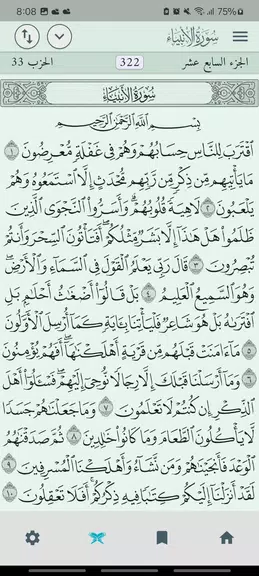 8:08 75%
سُورَةُ الأَنْبِيَاءِ
الجزء السابع عشر 322 الحزب 33
سُورَةُ الأَنْبِيَاءِ
بِسْمِ اللَّهِ الرَّحْمَٰنِ الرَّحِيمِ
ٱقْتَرَبَ لِلنَّاسِ حِسَابُهُمْ وَهُمْ فِى غَفْلَةٍ مُّعْرِضُونَ ١
مَا يَأْتِيهِم مِّن ذِكْرٍ مِّن رَّبِّهِم مُّحْدَثٍ إِلَّا ٱسْتَمَعُوهُ وَهُمْ
يَلْعَبُونَ ٢ لَاهِيَةً قُلُوبُهُمْ وَأَسَرُّوا۟ ٱلنَّجْوَى ٱلَّذِينَ
ظَلَمُوا۟ هَلْ هَٰذَآ إِلَّا بَشَرٌ مِّثْلُكُمْ أَفَتَأْتُونَ ٱلسِّحْرَ وَأَنتُمْ
تُبْصِرُونَ ٣ قَالَ رَبِّى يَعْلَمُ ٱلْقَوْلَ فِى ٱلسَّمَآءِ وَٱلْأَرْضِ
وَهُوَ ٱلسَّمِيعُ ٱلْعَلِيمُ ٤ بَلْ قَالُوٓا۟ أَضْغَٰثُ أَحْلَٰمٍ بَلِ
ٱفْتَرَىٰهُ بَلْ هُوَ شَاعِرٌ فَلْيَأْتِنَا بِـَٔايَةٍ كَمَآ أُرْسِلَ ٱلْأَوَّلُونَ
٥ مَآ ءَامَنَتْ قَبْلَهُم مِّن قَرْيَةٍ أَهْلَكْنَٰهَآ أَفَهُمْ يُؤْمِنُونَ
٦ وَمَآ أَرْسَلْنَا قَبْلَكَ إِلَّا رِجَالًا نُّوحِىٓ إِلَيْهِمْ فَسْـَٔلُوٓا۟ أَهْلَ
ٱلذِّكْرِ إِن كُنتُمْ لَا تَعْلَمُونَ ٧ وَمَا جَعَلْنَٰهُمْ جَسَدًا
لَّا يَأْكُلُونَ ٱلطَّعَامَ وَمَا كَانُوا۟ خَٰلِدِينَ ٨ ثُمَّ صَدَقْنَٰهُمُ
ٱلْوَعْدَ فَأَنجَيْنَٰهُمْ وَمَن نَّشَآءُ وَأَهْلَكْنَا ٱلْمُسْرِفِينَ
٩ لَقَدْ أَنزَلْنَآ إِلَيْكُمْ كِتَٰبًا فِيهِ ذِكْرُكُمْ أَفَلَا تَعْقِلُونَ ١٠